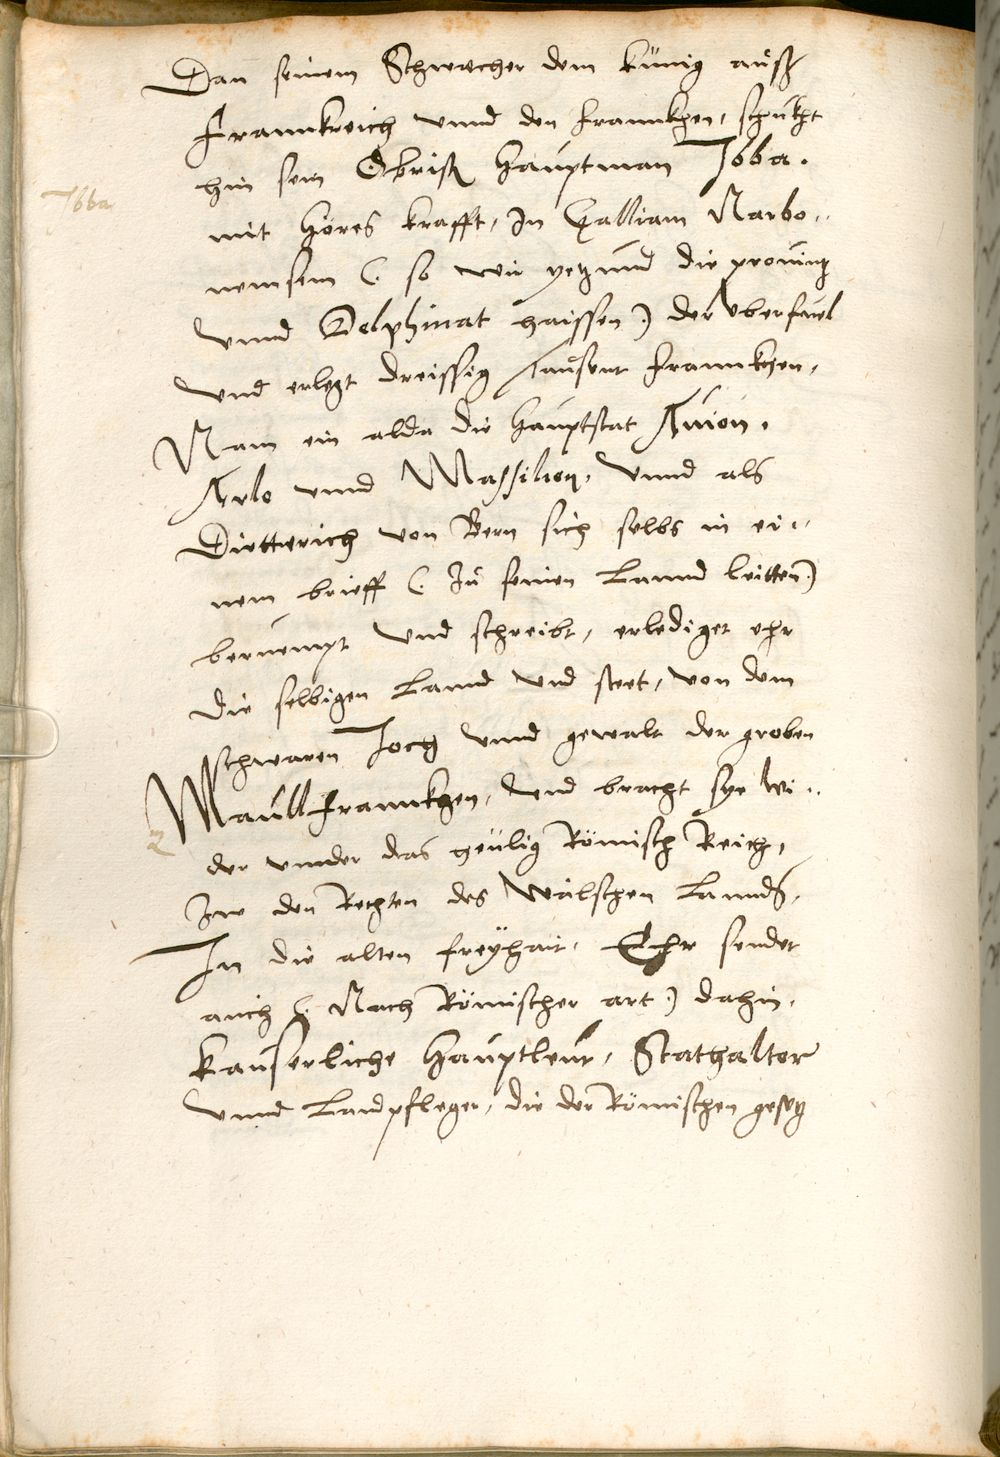 Dan seinem Schwecher dem künig auß
Frannkreich vnnd den Frannkhen, schickht
hin sein Obrist Hauptman Ibba.
Ibba
mit Höres krafft, In Galliam Narbo-
nensem (. so wir yetzund die prouintz
vnnd Delphinat haissen.) der vberfuel
vnd erlegt dreissig tausent Frannkhen,
Nam ein alda die Hauptstat Auion.
Arlo vnnd Massilien, vnnd als
Dietterich von Bern sich selbs in ei-
nem brieff (. Zu seinen Lannd leitten.)
beruempt vnd schreibt, erlediget ehr
die selbigen Lannd vnd stet, von dem
schwaren Joch vnnd gewalt der groben
Maull Frannkhen, vnd bracht sye wi-
der vnnder das heilig Römisch Reich,
Zw den Rechten des Wälschen Lannds,
In die alten freyhait, Ehr sendet
auch (. Nach Römischer art.) dahin,
kayserliche Hauptleut, Stathalter
vnnd Landpfleger, die der Römischen gesetz